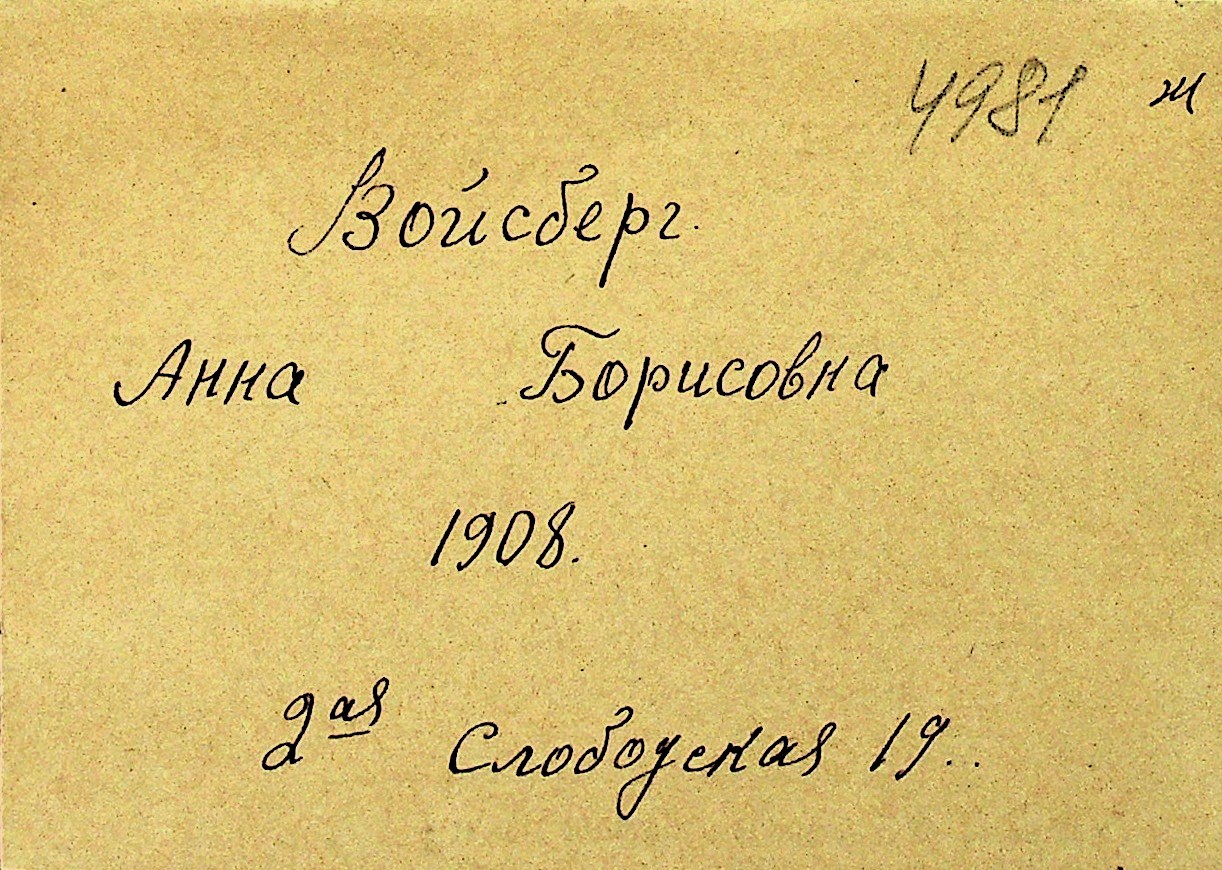 4981 ж
Войсберг.
Анна Борисовна
1908.
2ая Слободская 19..